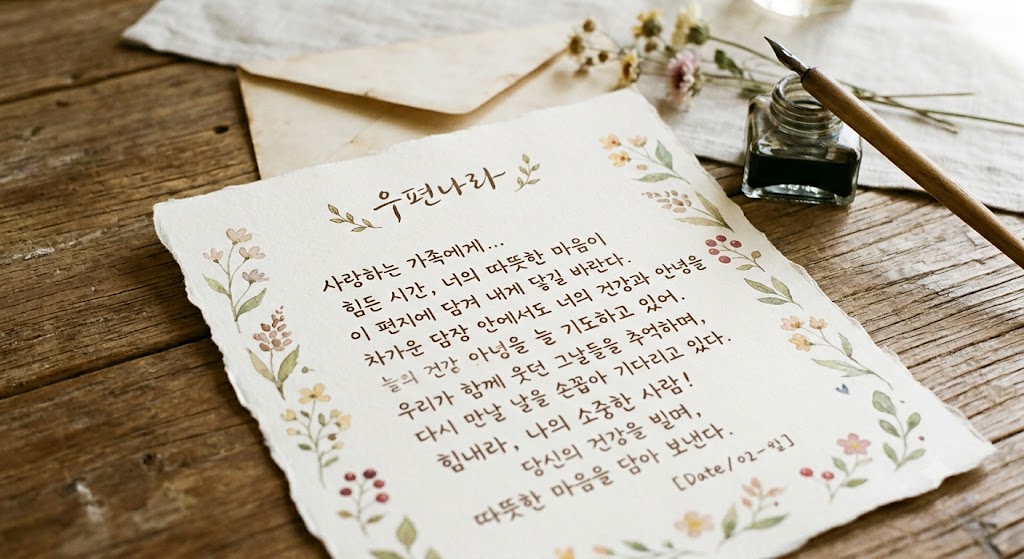 우편나라
사랑하는 가족에게...
힘든 시간, 너의 따뜻한 마음이
이 편지에 담겨 내게 닿길 바란다.
차가운 담장 안에서도 너의 건강과 안녕을
늘의 건강 안녕을 늘 기도하고 있어.
우리가 함께 웃던 그날들을 추억하며,
다시 만날 날을 손꼽아 기다리고 있다.
힘내라, 나의 소중한 사람!
당신의 건강을 빌며,
따뜻한 마음을 담아 보낸다.
[Date/02-월]